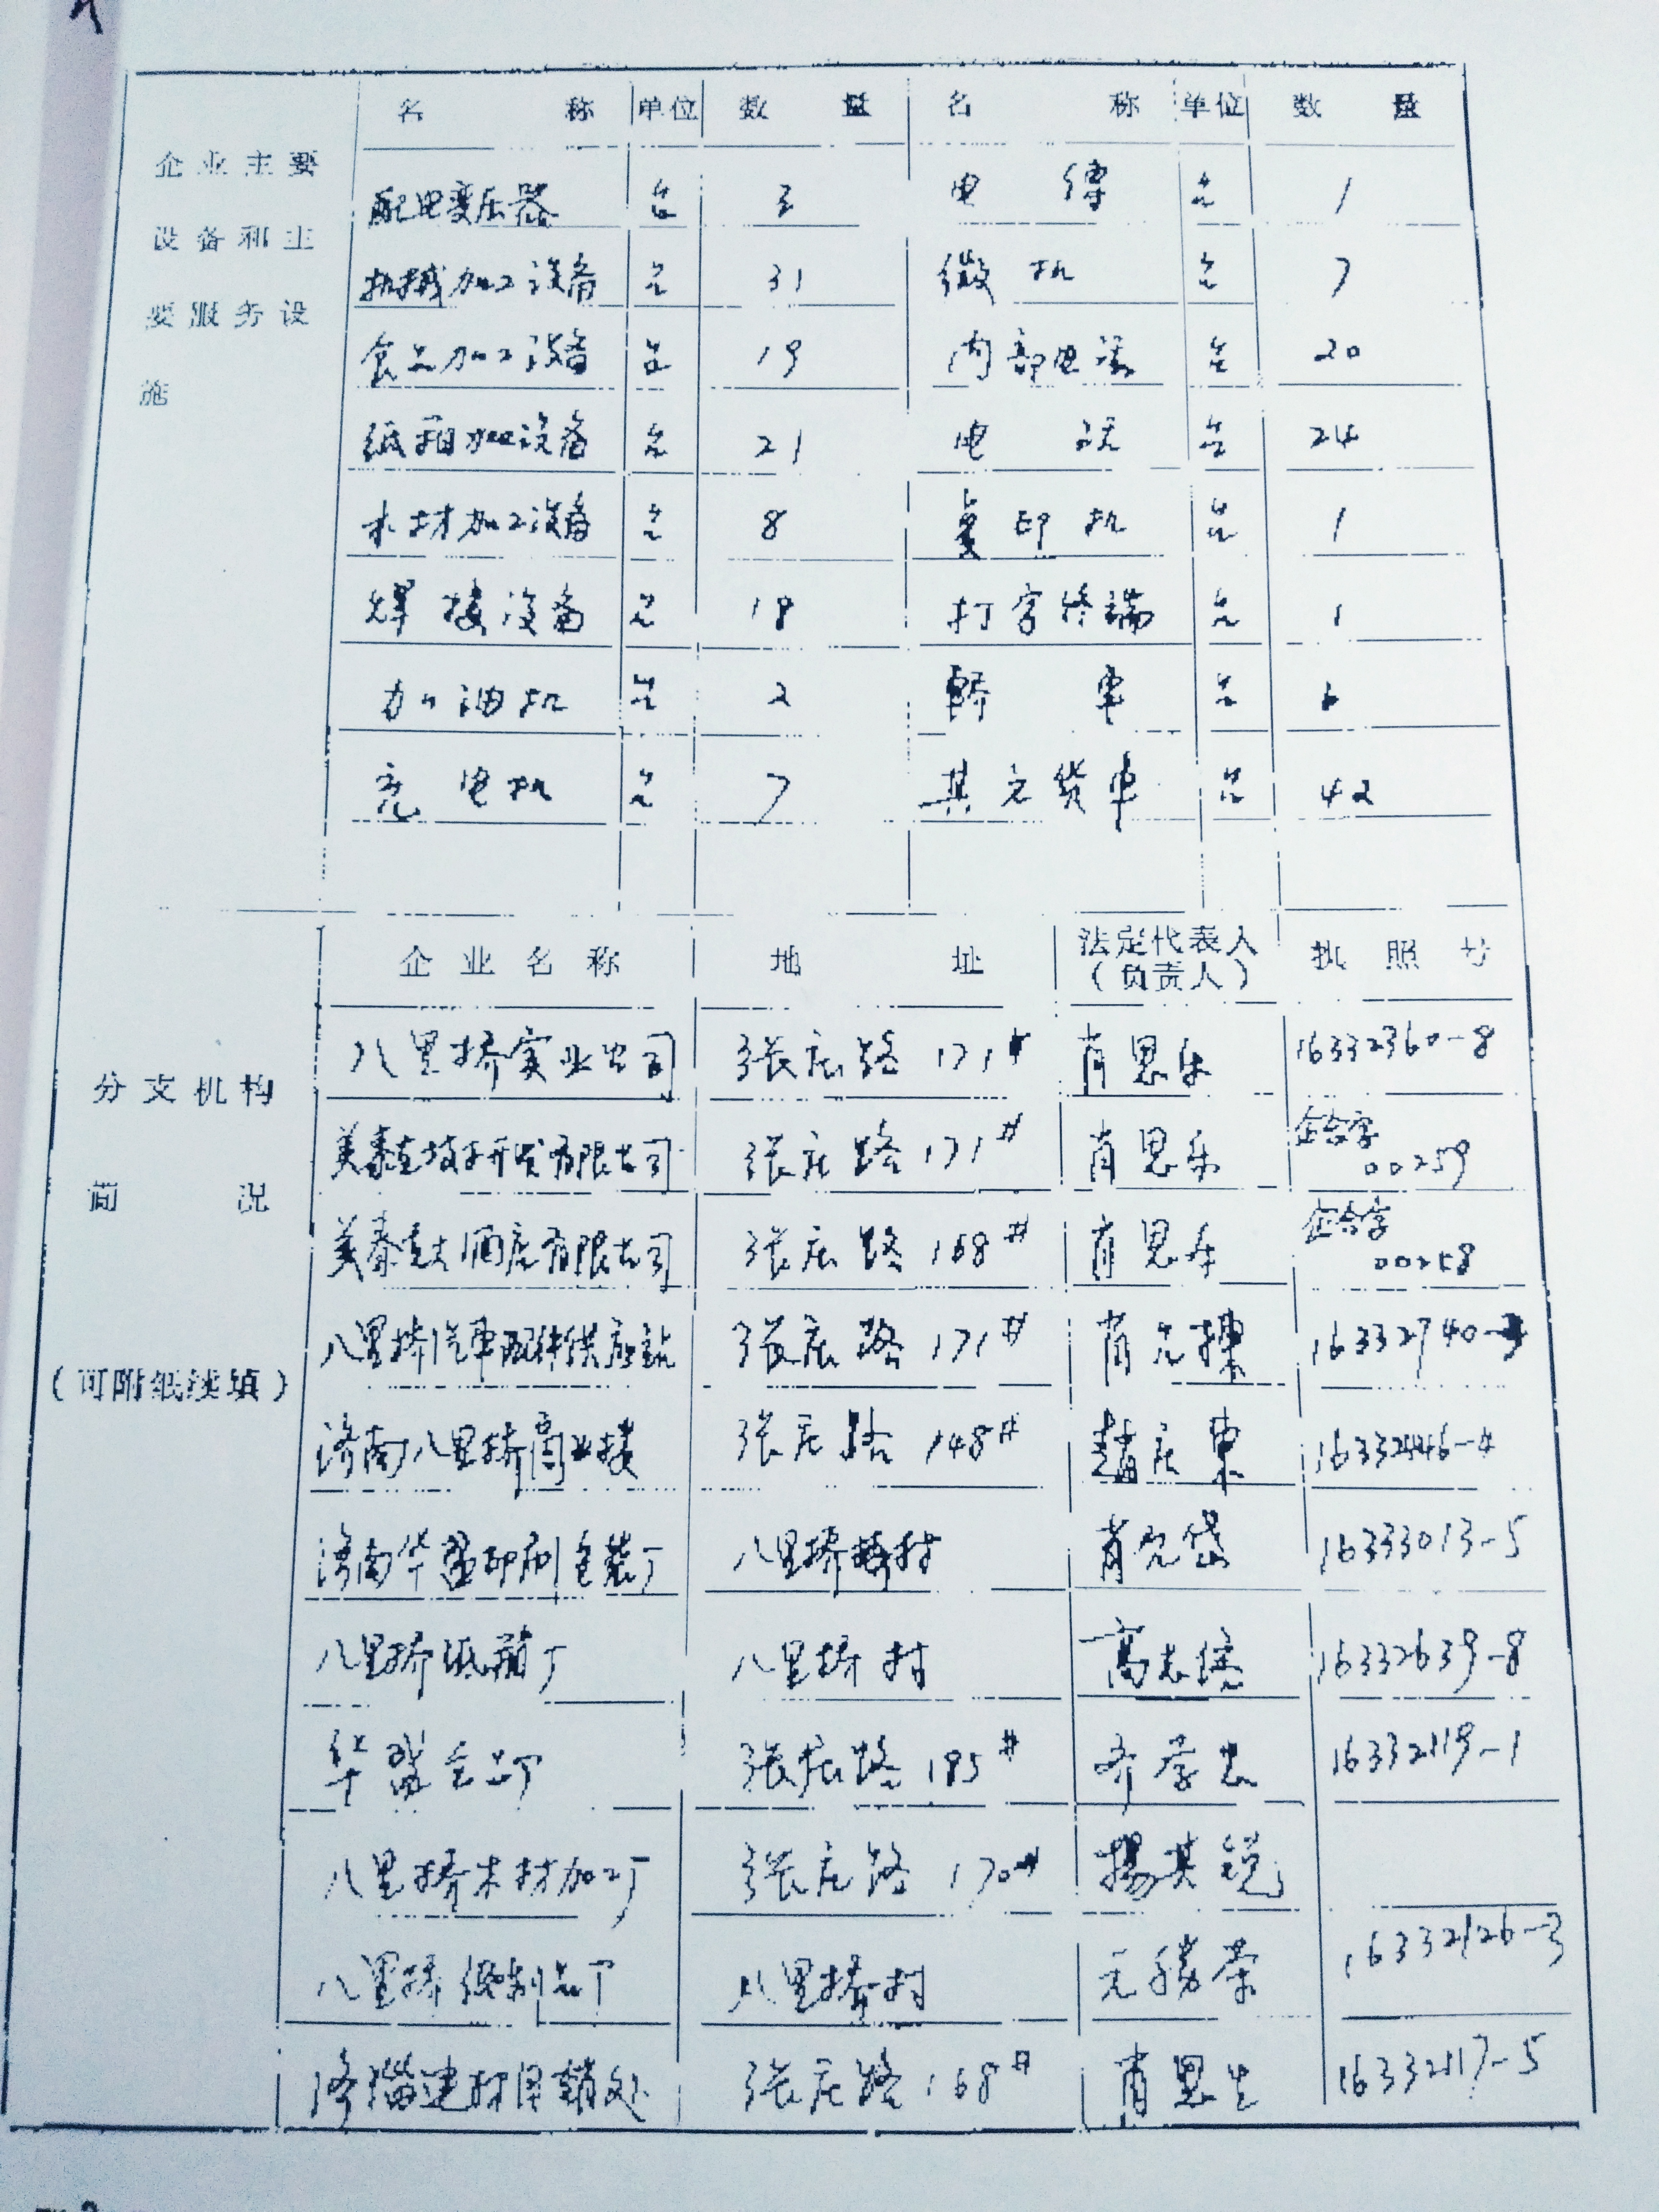 名 称 单位 数 量 名 称 单位 数 量
企业主要
设备和主
要服务设
施
配电变压器 台 3 电 传 台 1
机械加工设备 台 31 微机 台 7
食品加工设备 台 19 内部电话 台 20
纸箱加工设备 台 21 电 话 台 24
木材加工设备 台 8 复印机 台 1
焊接设备 台 18 打字终端 台 1
加油机 台 2 轿 车 台 6
充电机 台 7 其它货车 台 42
分支机构
简 况
(可附纸续填)
企业名称 地 址 法定代表人
(负责人) 执照号
八里桥实业公司 张庄路 171# 肖思乐 16332360-8
美泰 技术开发有限公司 张庄路 171# 肖思乐 企合字
00259
美泰 大酒店有限公司 张庄路 168# 肖思乐 企合字
00258
八里桥汽车配件供应站 张庄路 171# 肖元 16332740-
济南八里桥商业楼 张庄路 148# 赵庄东 16332446-4
济南华盈印刷包装厂 八里桥 村 肖元岱 16333013-5
八里桥纸箱厂 八里桥村 高志 16332639-8
华盈食品厂 张庄路 185# 齐学忠 16332119-1
八里桥木材加工厂 张庄路 170# 杨其锐
八里桥 制品厂 八里桥村 元胜荣 16332126-3
济 建材经销处 张庄路 168# 肖思生 16332117-5